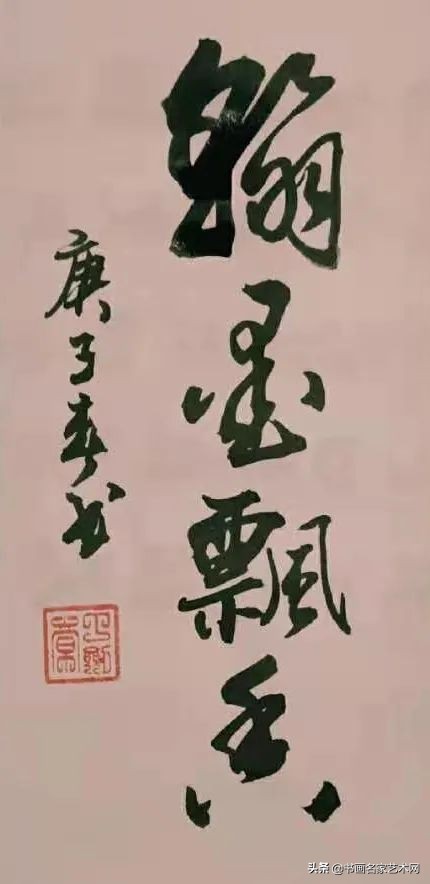 翰墨飄香
庚子春书
头条 @书画名家艺术网